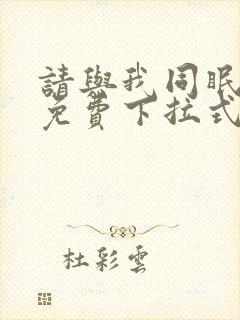 請與我同眠
免費下拉式
杜彩雲